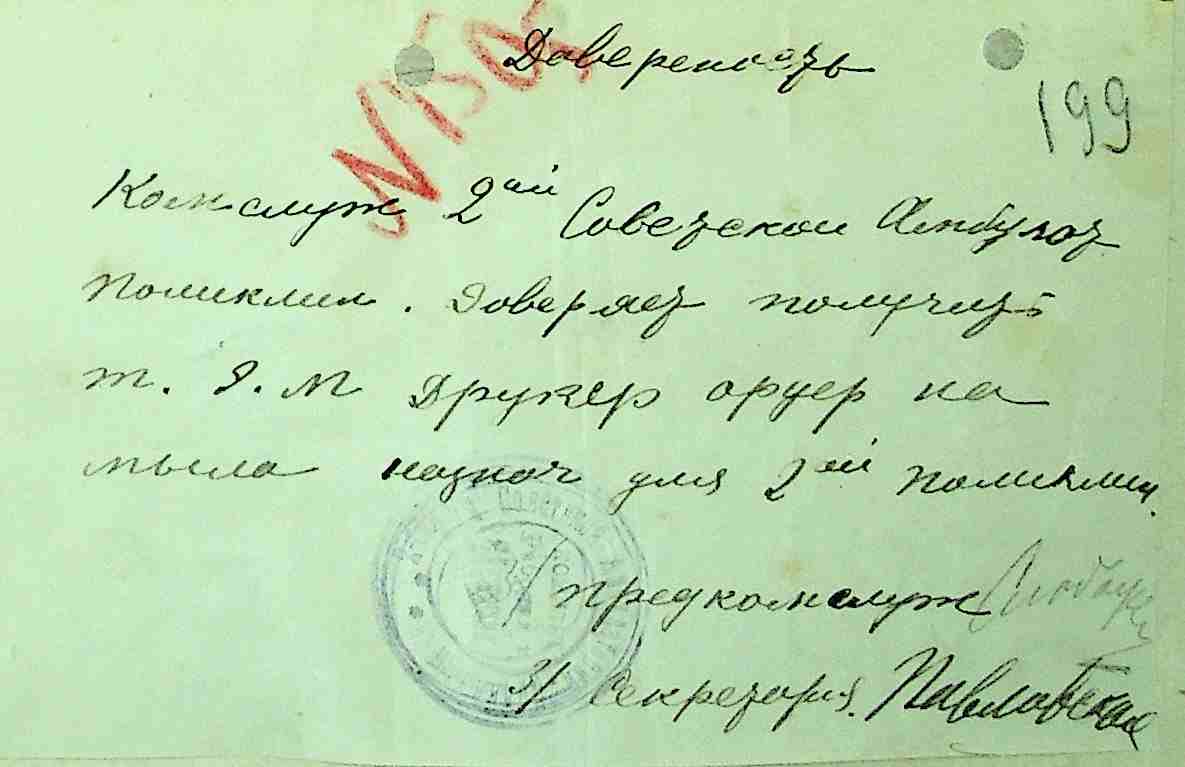 Доверенность
199
Комслуж 2ой Советской Амбулат
поликлин. Доверяет получить
т. Я. М Друкер ордер на
мыла назнач для 2ой поликлин.
/ предкомслуж
З/ Секретаря. Павловская